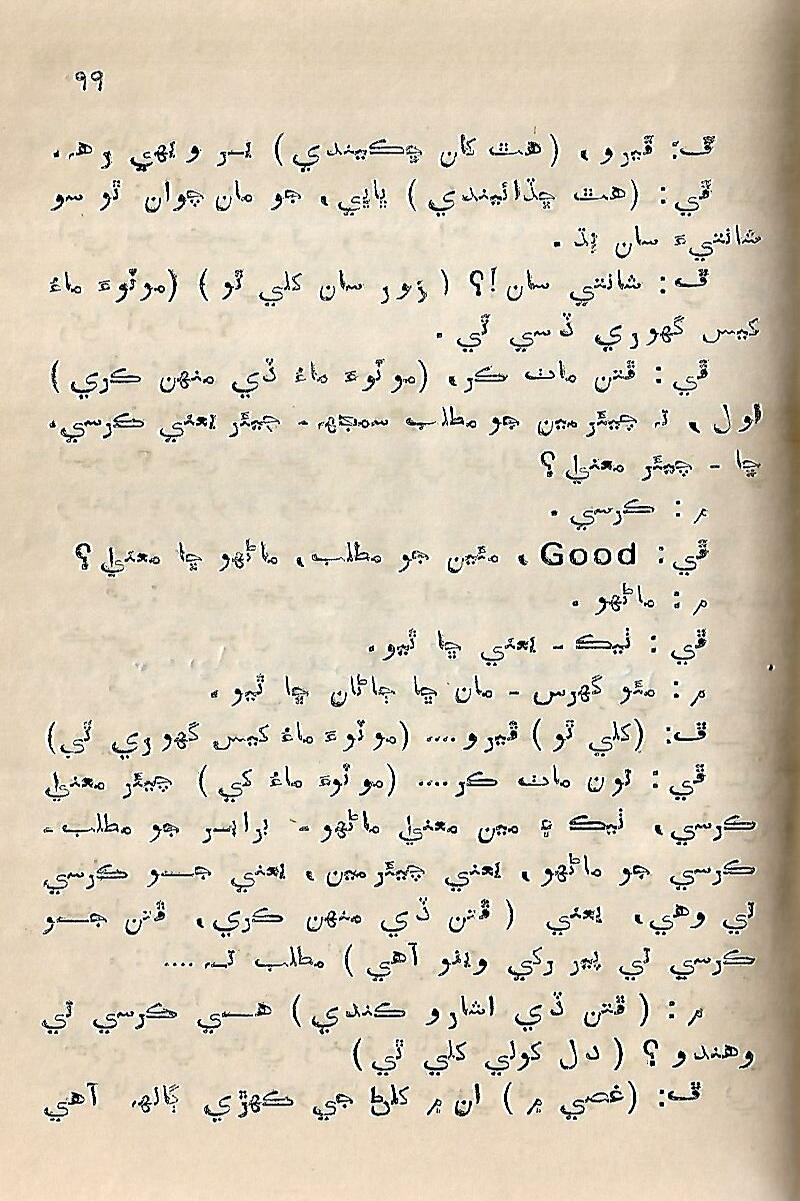 ۹۹
ڦ: ڦيرو، (هٿ کان ڇڪيندي) ٻر و ٻهي رهه.
ڦي: (هٿ ڇڏائيندي) ڀاڀي، جو مان چوان ٿو سو
شانتيءَ سان ٻڌ.
ڦ: شانتي سان!؟ (زور سان کلي ٿو) (موٽوءَ ماءُ
کيس گهوري ڏسي ٿي.
ڦي: ڦتن ماٺ ڪر، (موٽوءَ ماءُ ڏي منهن ڪري)
اول، تہ چيئرمين جو مطلب سمجهہ - چيئر يعني ڪرسي.
ڇا - چيئر معنيٰ؟
م: ڪرسي.
ڦي: Good، مئين جو مطلب، ماڻهو ڇا معنيٰ؟
م: ماڻهو.
ڦي: ٺيڪ - يعني ڇا ٿيو.
م: مئو گهرس - مان ڇا ڄاڻان ڇا ٿيو.
ڦ: (کلي ٿو) ڦيرو.... (موٽوءَ ماءُ کيس گهوري ٿي)
ڦي: تون ماٺ ڪر.... (موٽوءَ ماءُ کي) چيئر معنيٰ
ڪرسي، ٺيڪ ۽ مين معنيٰ ماڻهو - برابر جو مطلب -
ڪرسي جو ماڻهو، يعني چيئرمين، يعني جــو ڪرسي
تي وهي، يعني (ڦتن ڏي منهن ڪري، ڦتن جــو
ڪرسي تي پير رکي ويٺو آهي) مطلب تہ....
م: (ڦتن ڏي اشارو ڪندي) هــي ڪرسي تي
وهندو؟ (دل کولي کلي ٿي)
ڦ: (غصي ۾) ان ۾ کلڻ جي ڪهڙي ڳالهہ آهي